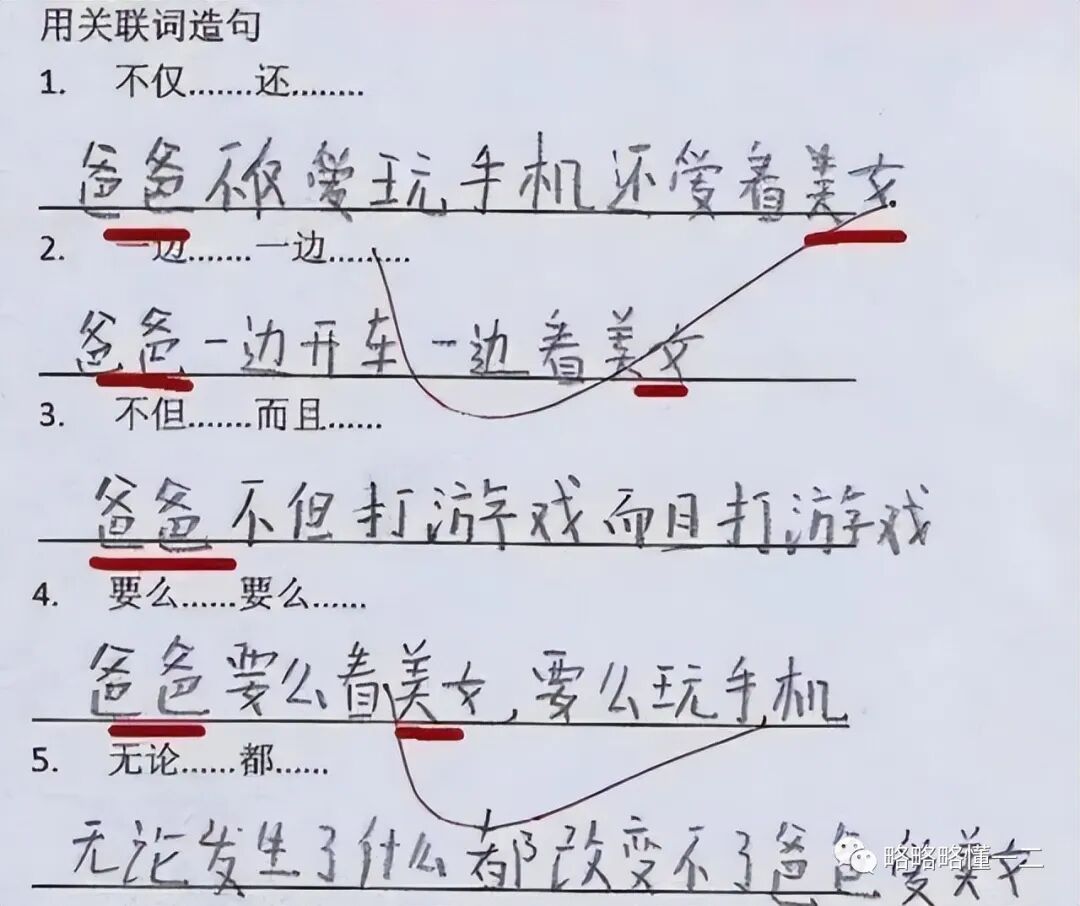 用关联词造句
1. 不仅.......还........
爸爸不仅爱玩手机还爱看美女.
2. 一边.......一边.........
爸爸一边开车一边看美女
3. 不但.......而且......
爸爸不但打游戏而且打游戏
4. 要么......要么......
爸爸要么看美女,要么玩手机
5. 无论......都......
无论发生了什么都改变不了爸爸爱美女
略略略懂一二